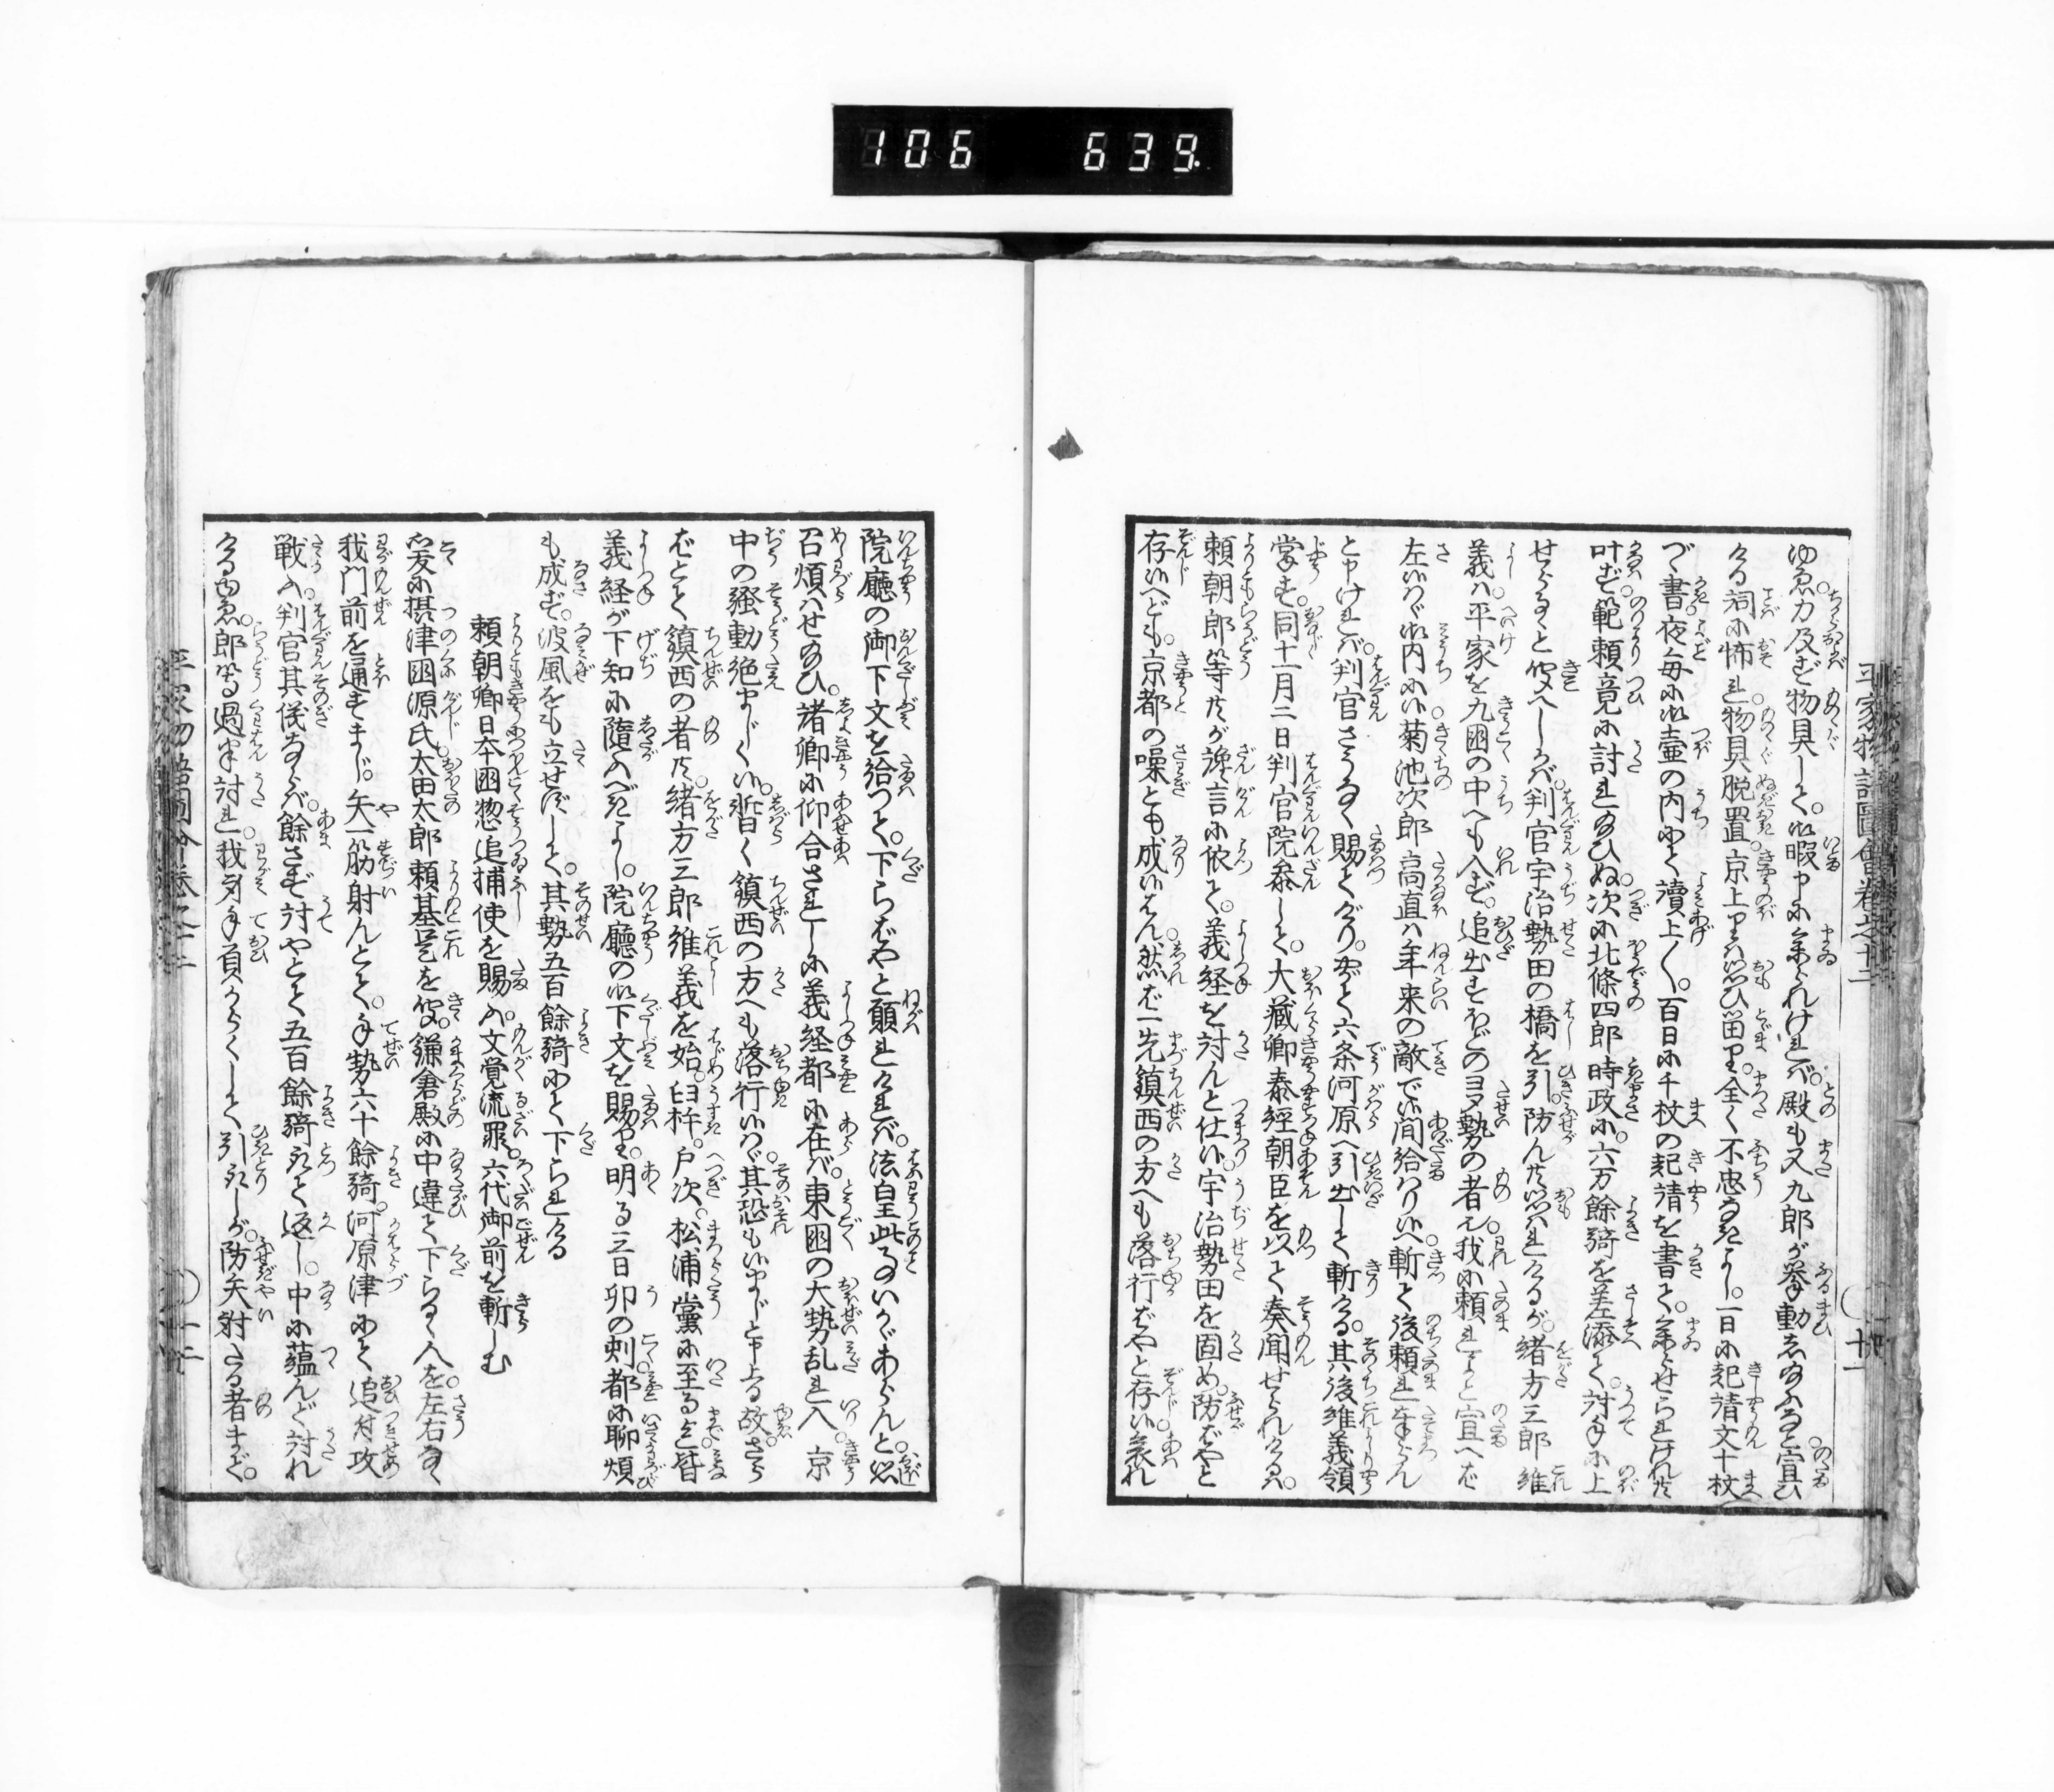 106 639.
平家物語圖會卷之十二
十一
ゆゑ。力及ばず物具して。御暇申に参られければ。殿も又九郎が挙動し給ふなと宣ひ
ける詞に怖れ。物具脱置。京上りは思ひ留り。全く不忠なきよし。一日に起請文十枚
づゝ書。夜毎に御壷の内にて讀上〱。百日に千枚の起請を書て。参らせられけれ共
叶ず。範頼竟に討れ給ひぬ。次に北條四郎時政に。六万餘騎を差添て。討手に上
せらるゝと聞へしかば。判官宇治勢田の橋を引。防ん共思はれけるが。緒方三郎維
義ハ。平家を九國の中へも入ず。追出すほどの多勢の者也。我に頼れよと宣へば
左いはゞ御内に。菊池次郎高直ハ年来の敵で候間給はり候へ。斬て後頼れ奉らん
と申ければ。判官さうなく賜てげり。やがて六条河原へ引出して斬ける。其後維義領
掌す。同十一月二日判官院参して。大蔵卿泰經朝臣を以て奏聞せられけるは。
頼朝郎等共が讒言に依て。義経を討んと仕候。宇治勢田を固め。防ばやと
存候へども。京都の噪とも成候はん。然ば一先鎮西の方へも落行ばやと存候。哀れ
院廳の御下文を給つて。下らばやと願れければ。法皇此事いかゞあらんと。思
召煩はせ給ひ。諸卿に仰合されしに義経都に在バ。東國の大勢乱れ入。京
中の騒動絶まじく候。暫く鎮西の方へも落行候はゞ。其恐も候まじと申上る故。さら
ばとて鎮西の者共。緒方三郎維義を始。臼杵。戸次。松浦黨に至るまで。皆
義経が下知に隨ふべきよし。院廳の御下文を賜り。明る三日卯の刻都に聊煩
も成ず。波風をも立せずして。其勢五百餘騎にて下られける
頼朝卿日本國惣追捕使を賜ふ。文覚流罪。六代御前を斬しむ
爰に摂津國源氏。太田太郎頼基是を聞。鎌倉殿に中違て下らるゝ人を。左右なく
我門前を通すまじ。矢一筋射んとて。手勢六十餘騎。河原津にて追付攻
戦ふ。判官其儀ならば。餘さず討やとて。五百餘騎取て返し。中に蘊んど討れ
けるゆゑ。郎等過半討れ。我身手負からくして。引取しが。防矢射たる者まで。
平家物語圖會卷之十二
十二